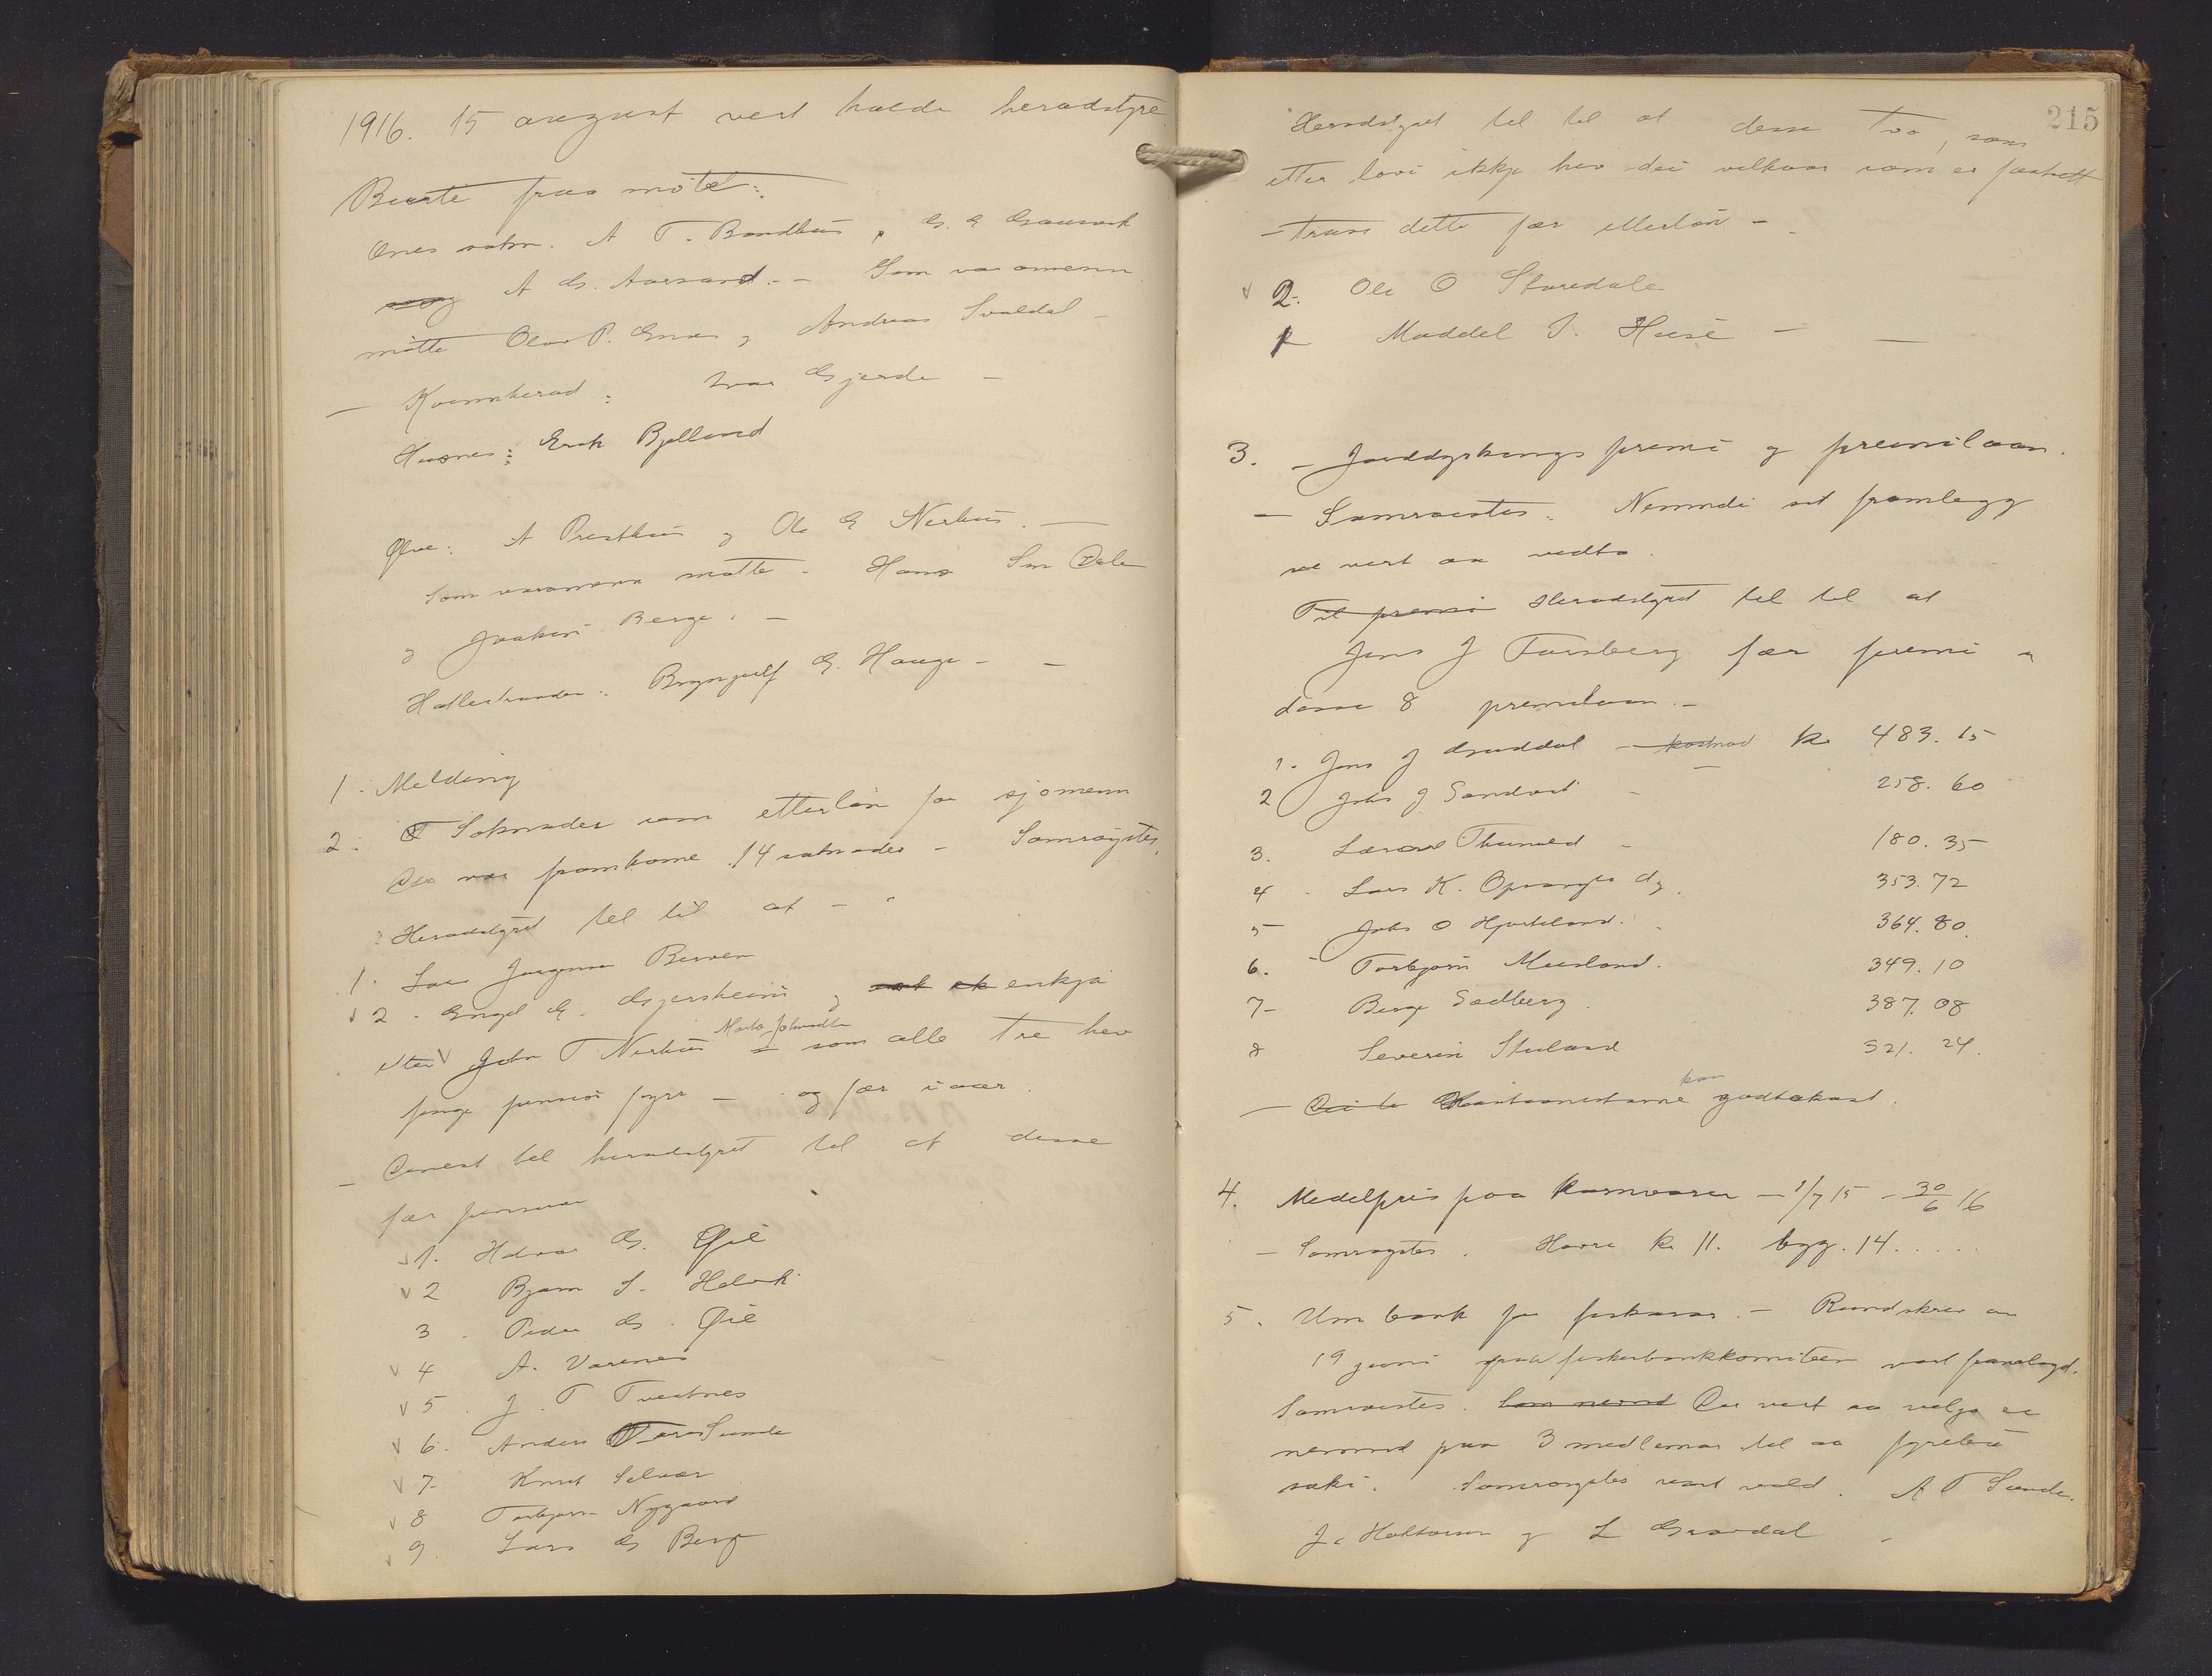 1916. 15 august vert halde heradstyre
Burte fraa møtet:
Ænes sokn. A T. Bondhus, G. E Gauarvik
A G. Aarsand. - Som varamenn
møtte Olav P. Enes og Andreas Svaldal -
- Kvinnherad: Ivar Gjerde -
Husnes: Erik Bjelland
Ølve: A Presthus og Ole E Nerhus. -
Som varamenn møtte. Hans Sm Dale
og Joakim Berge. -
Hatlestranden: Brynjulf G. Hauge - -
1. Melding
2. Søknader um etterløn for sjømenn
Der var framkome 14 søknader - Samrøystes
Heradstyret tel til at -
1. Lars Jørgensen
2. Engel E. Gjersheim og enkja
etter John T Nerhus Marta Johnsdtr som alle tre hev
fenge pensjon fyrr - og fær i aar.
- Dinest tel heradstyret til at desse
fær pensjon
1. Hdvar G. Øie
2 Bjørn S. Helvik
3. Peder G. Øie
4 A. Varenes
5. J. T Tveitnes
6. Anders Sunde
7- Knut Selvær
8 Torbjørn Nygaard
9. Lars G Berg
215
Heradstyret tel til at desse tvo, som
etter lovi ikkje hev dei vilkaar som er fastsett
- trass dette fær etterløn -
2. Ole O Staredale
Maddel J. Huse -
3. - Jorddyrkings premi og premilaan.
- Samrøistes: Nemndi sit framlegg
vert aa vedta.
Til premi Heradstyret tel til at
Jens J Forsberg fær premi og
desse 8 premilaan. -
1. Jens J Guddal - kostnad kr 483. 15
2 Johs J Sandvik - 258. 60
3. Thunold - 180. 35
4. Lars K. Opsanger dy. 353. 72
5 Johs O Hjorteland. 364. 80.
6. Torbjørn Musland. 349. 10
7- Berge Sædberg. 387. 08
8 Severin Stuland 321. 24.
- kan godtakast.
4. Medelpris paa kornvarer - 1/7 15 - 30/6 16
- Samrøystes. Havre kr 11. bygg. 14. . . . .
5. Um bank for fiskarar. - Rundskriv av
19 juni fraa fiskerbankkomiteen vart framlagd.
Samrøistes. Som nemnd Der vert aa velja ei
nemnd paa 3 medlemar til aa fyrebu
saki. Samrøystes vart vald. A T Sunde.
J. Haktorson og L Gravdal -